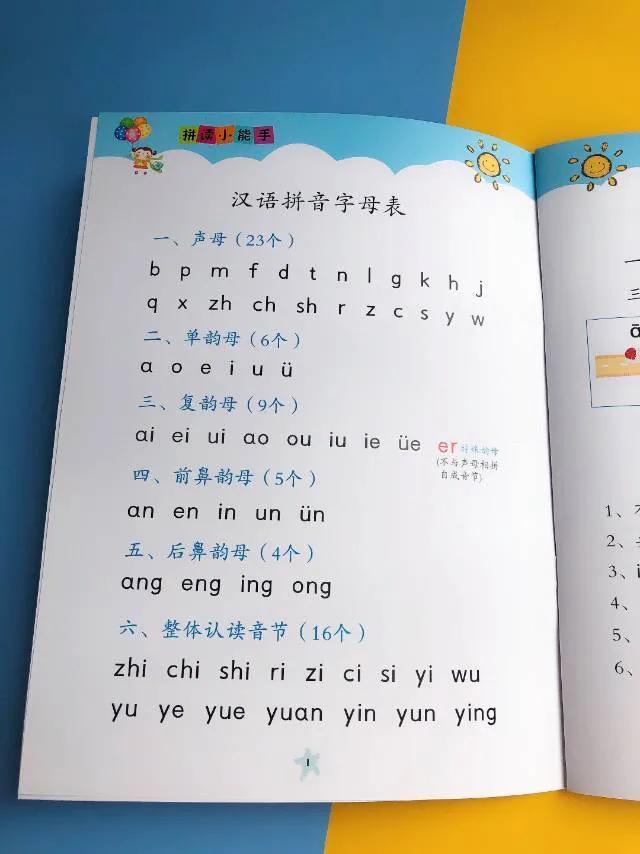 拼读小能手
汉语拼音字母表
一、声母（23个）
b p m f d t n l g k h j
q x zh ch sh r z c s y w
二、单韵母（6个）
ɑ o e i u ü
三、复韵母（9个）
ɑi ei ui ɑo ou iu ie üe er 特殊韵母
(不与声母相拼
自成音节)
四、前鼻韵母（5个）
ɑn en in un ün
五、后鼻韵母（4个）
ɑng eng ing ong
六、整体认读音节（16个）
zhi chi shi ri zi ci si yi wu
yu ye yue yuɑn yin yun ying
1
三
ɑ̄
1、
2、
3、i
4、
5、
6、